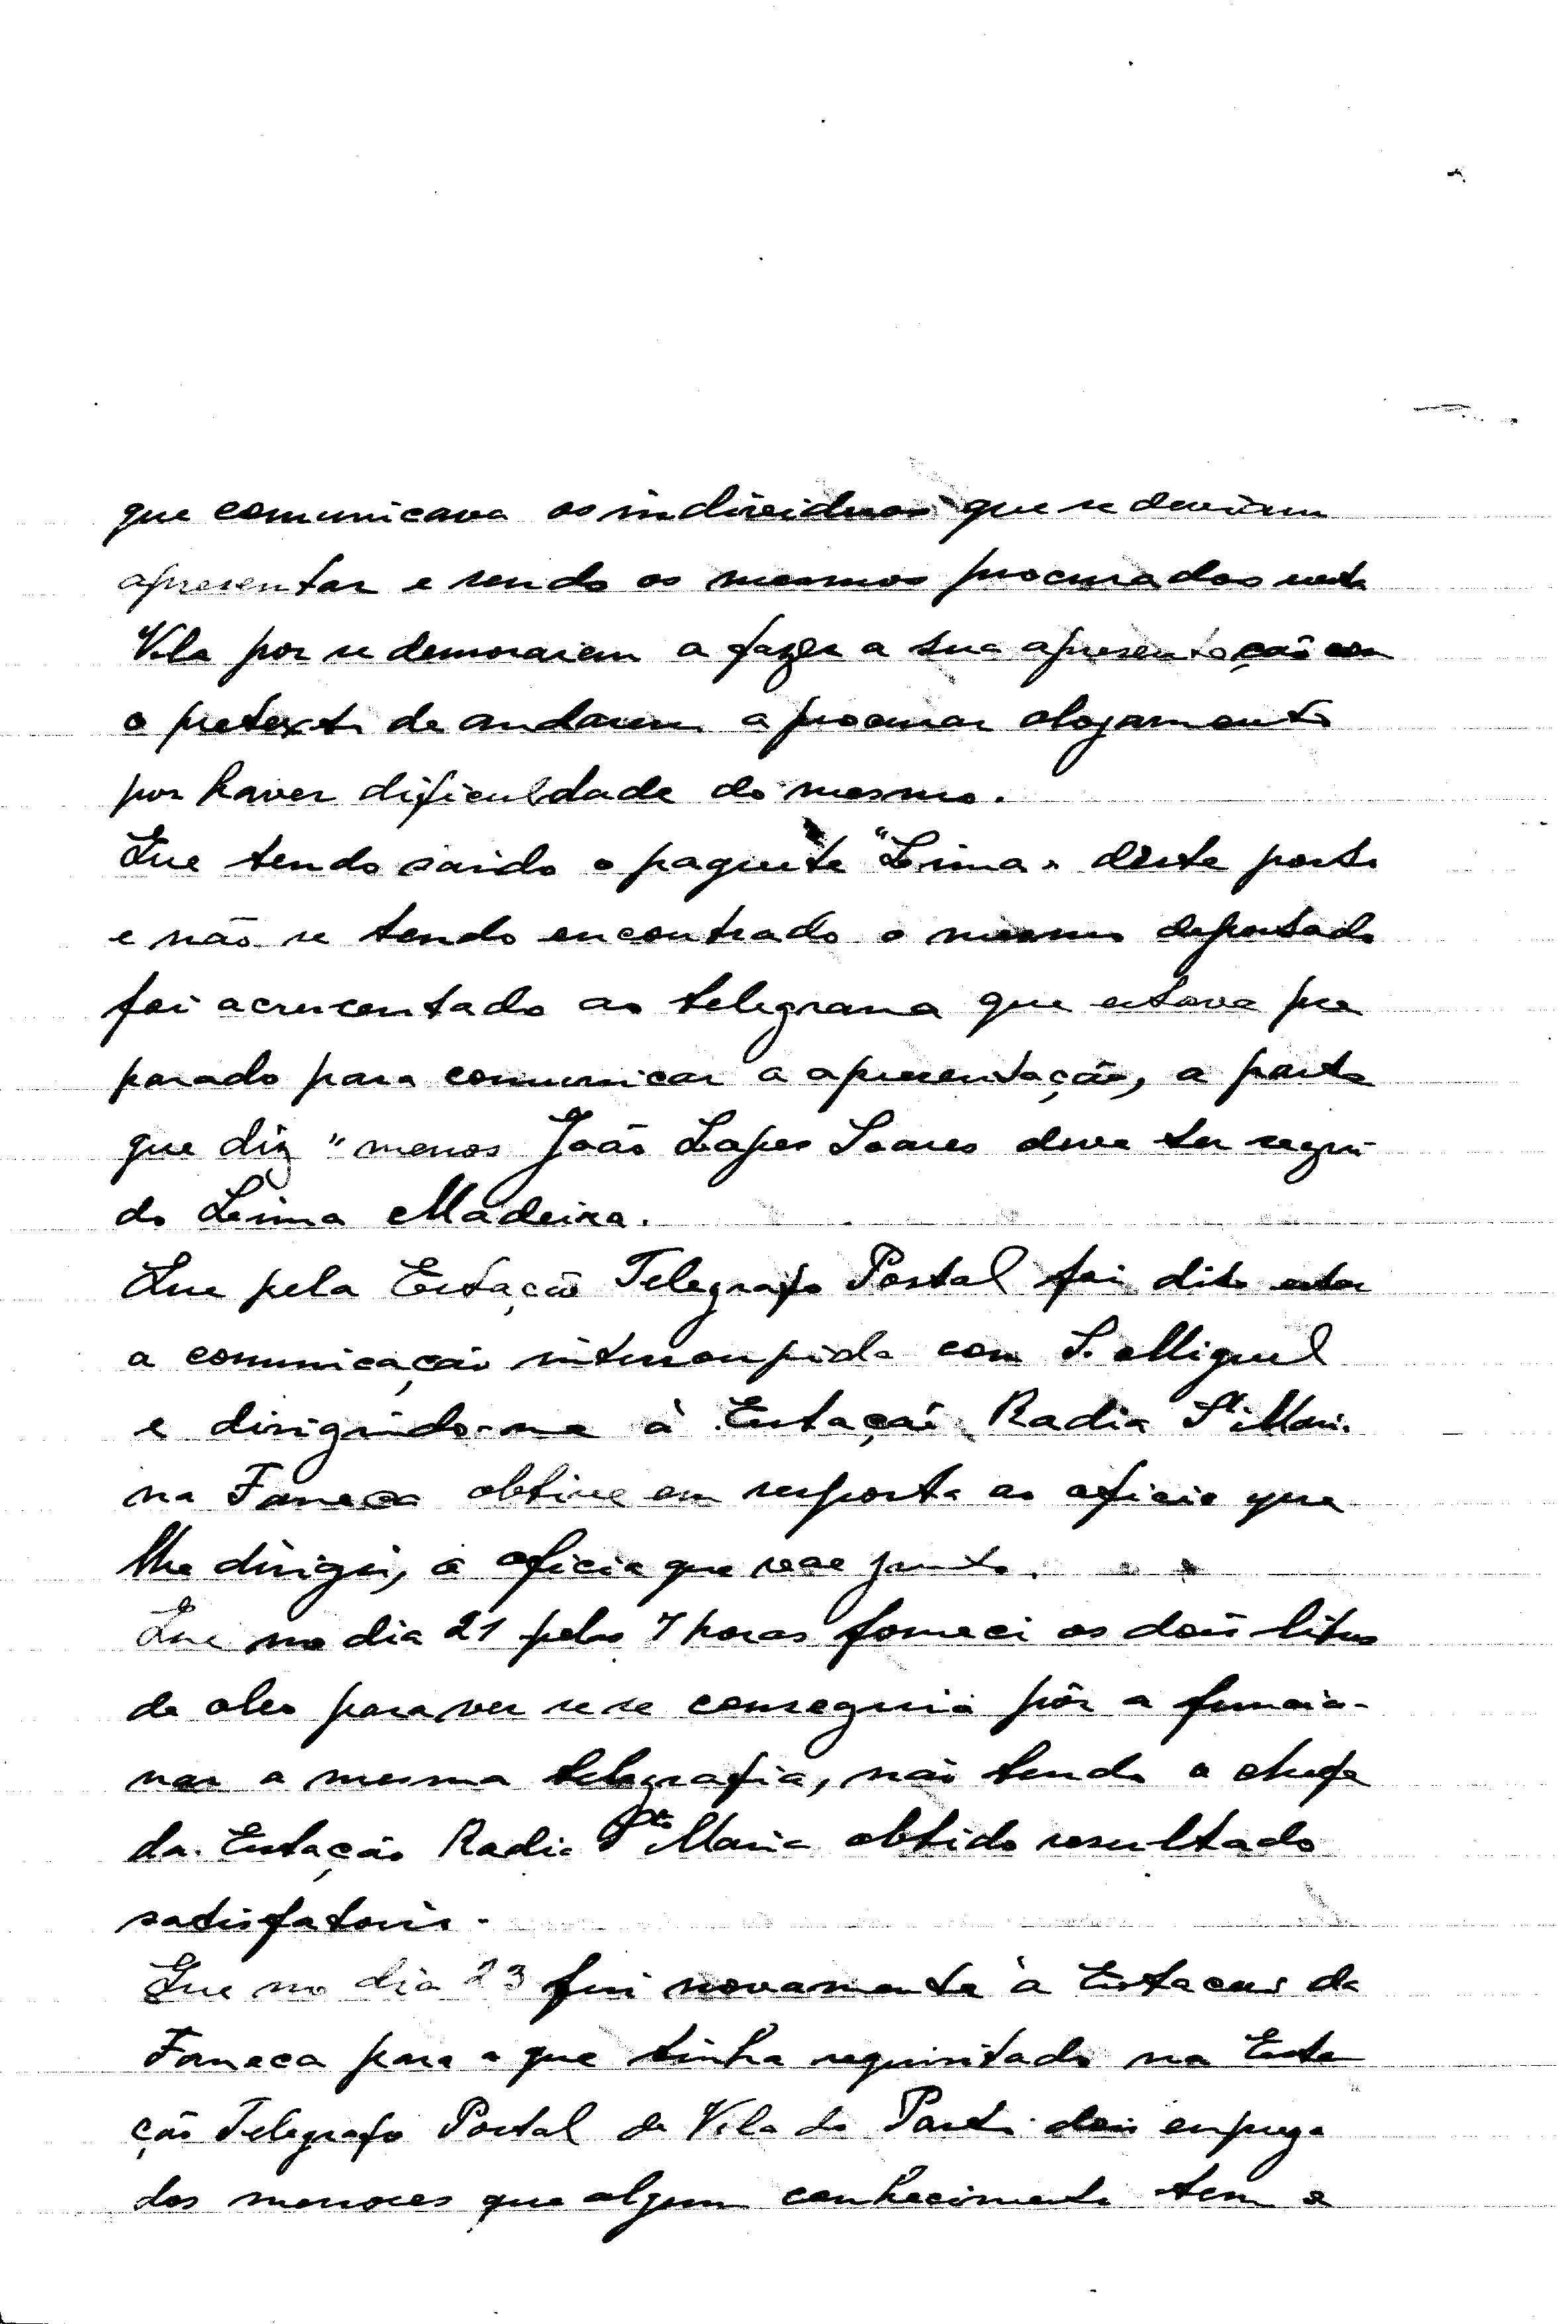 que comunicava os individuos que se deveriam
apresentar e sendo os mesmos procurados nesta
Vila por se demorarem a fazer a sua apresentação com
o pretexto de andarem a procurar alojamento
por haver dificuldade do mesmo.
Que tendo saido o paquete "Lima" deste porto
e não se tendo encontrado o mesmo deportado
foi acrescentado ao telegrama que estava pre
parado para comunicar a apresentação, a parte
que diz "menos João Lopes Soares deve ter segui-
do Lima Madeira.
Que pela Estação Telegrafo Postal foi dito estar
a comunicação interrompida com S. Miguel
e dirigindo-me à Estação Radio Stª Mari.
na Faneca obtive em resposta ao oficio que
lhe dirigi, o oficio que vae junto.
Que no dia 21 pelas 7 horas forneci os dois litros
de oleo para ver se se conseguia pôr a funcio-
nar a mesma telegrafia, não tendo o chefe
da Estação Radio Stª Maria obtido resultado
satisfatorio.
Que no dia 23 fui novamente à Estação da
Faneca para o que tinha requisitado na Esta
ção Telegrafo Postal de Vila do Porto dois emprega
dos menores que algum conhecimento tem e